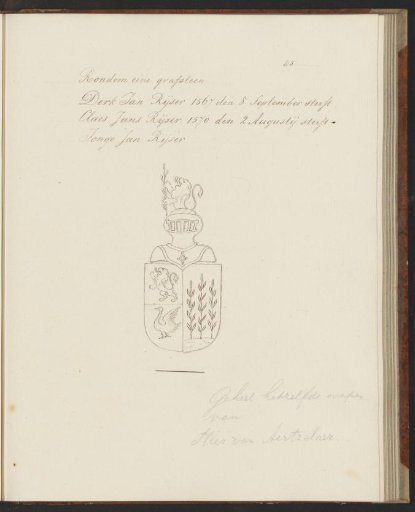 45
Rondom eene grafsteen
Derk Jan Rijser 1567 den 8 September sterft
Claes Jans Rijser 1570 den 2 Augustij sterft
Jonge Jan Rijser
Geheel hetzelfde wapen
van